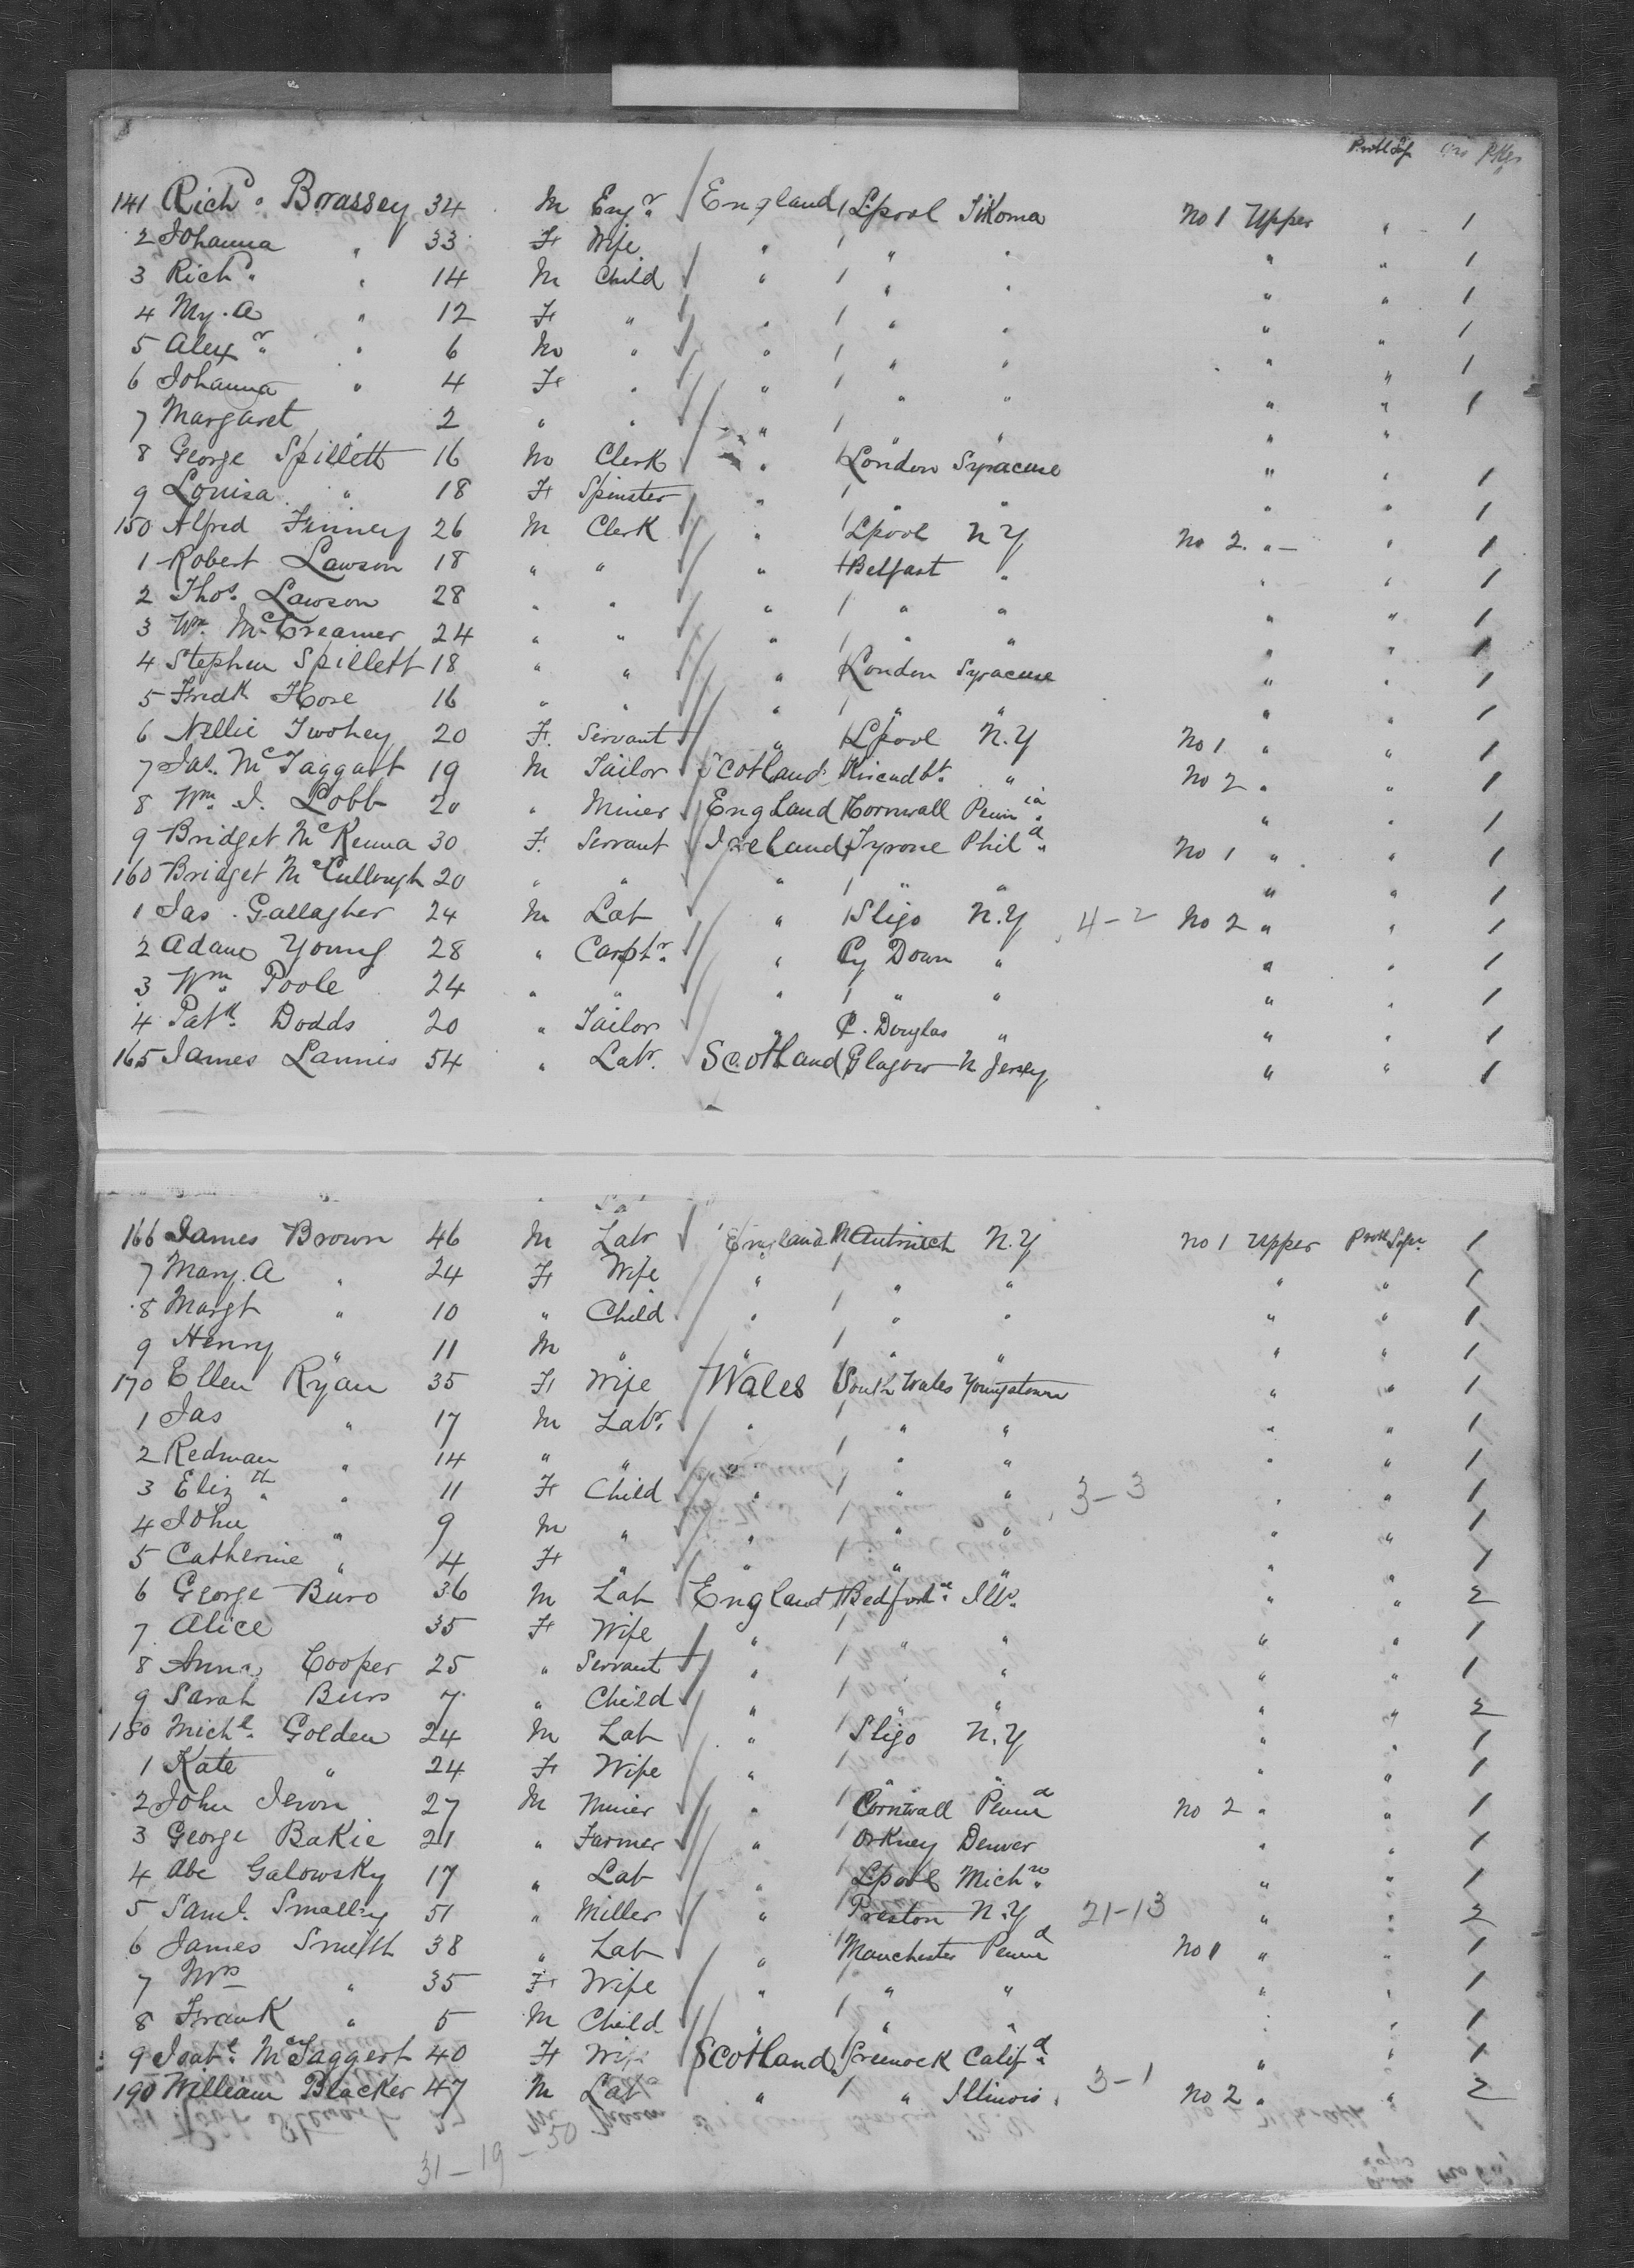 Prot Sof No Pkgs
141 Richd. Brassey 34 M Engr. England Lpool Tikoma No 1 Upper " 1
2 Johanna " 33 F Wife " " " " " 1
3 Richd. " 14 M Child " " " " " 1
4 My. A " 12 F " " " " " " 1
5 Alexr. " 6 M " " " " " " 1
6 Johanna " 4 F " " " " " " 1
7 Margaret " 2 " " " " " " "
8 George Spillett 16 M Clerk " London Syracuse " " 1
9 Louisa " 18 F Spinster " " " " " 1
150 Alfred Finney 26 M Clerk " Lpool N Y No 2 " " 1
1 Robert Lawson 18 " " " Belfast " " " 1
2 Thos. Lawson 28 " " " " " " " 1
3 Wm. McCreamer 24 " " " " " " " 1
4 Stephen Spillett 18 " " " London Syracuse " " 1
5 Fredk Hose 16 " " " " " " " 1
6 Nellie Twohey 20 F. Servant " Lpool N.Y No 1 " " 1
7 Jas. McTaggart 19 M Tailor Scotland Kircudbt. " No 2 " " 1
8 Wm. J. Lobb 20 " Miner England Cornwall Pennia. " " 1
9 Bridget McKenna 30 F. Servant Ireland Tyrone Phila. No 1 " " 1
160 Bridget McCullough 20 " " " " " " " 1
1 Jas. Gallagher 24 M Lab " Sligo N.Y 4-2 No 2 " " 1
2 Adam Young 28 " Carptr. " Cy Down " " " 1
3 Wm. Poole 24 " " " " " " " 1
4 Patk. Dodds 20 " Tailor " C. Douglas " " " 1
165 James Lannis 54 " Labr. Scotland Glasgow N Jersey " " 1
166 James Brown 46 M Labr England Nantwich N.Y No 1 Upper Prot Sofn. 1
7 Mary. A " 24 F Wife " " " " " 1
8 Margt " 10 " Child " " " " " 1
9 Henry " 11 M " " " " " " 1
170 Ellen Ryan 35 F Wife Wales South Wales Youngstown " " 1
1 Jas " 17 M Labr. " " " " " 1
2 Redman " 14 " " " " " " " 1
3 Elizth. " 11 F Child " " " 3-3 " " 1
4 John " 9 M " " " " " " 1
5 Catherine " 4 F " " " " " " 1
6 George Burs 36 M Lab England Bedford. Ills. " " 2
7 Alice 35 F Wife " " " " " 1
8 Anna Cooper 25 " Servant " " " " " 1
9 Sarah Burs 7 " Child " " " " " 2
180 Michl. Golden 24 M Lab " Sligo N.Y " " 1
1 Kate " 24 F Wife " " " " " 1
2 John Jevon 27 M Miner " Cornwall Penna No 2 " " 1
3 George Bakie 21 " Farmer " Orkney Denver " " 1
4 Abe Galowsky 17 " Lab " Lpool Michn. " " 1
5 Saml. Smalley 51 " Miller " Preston N.Y 21-13 " " 2
6 James Smith 38 " Lab " Manchester Penna No 1 " " 1
7 Mrs " 35 F Wife " " " " " 1
8 Frank " 5 M Child " " " " " 1
9 Isabl. McTaggert 40 F Wife Scotland Greenock Califa. " " 1
190 William Blacker 47 M Lab " " Illinois 3-1 No 2 " " 2
31-19-30